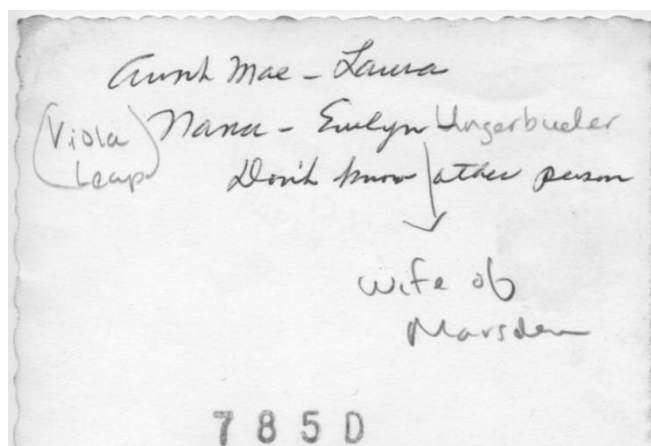 Aunt Mae - Laura
(Viola Leap) Nana - Evelyn Ungerbueler
Don't know other person
wife of
Marsden
785D